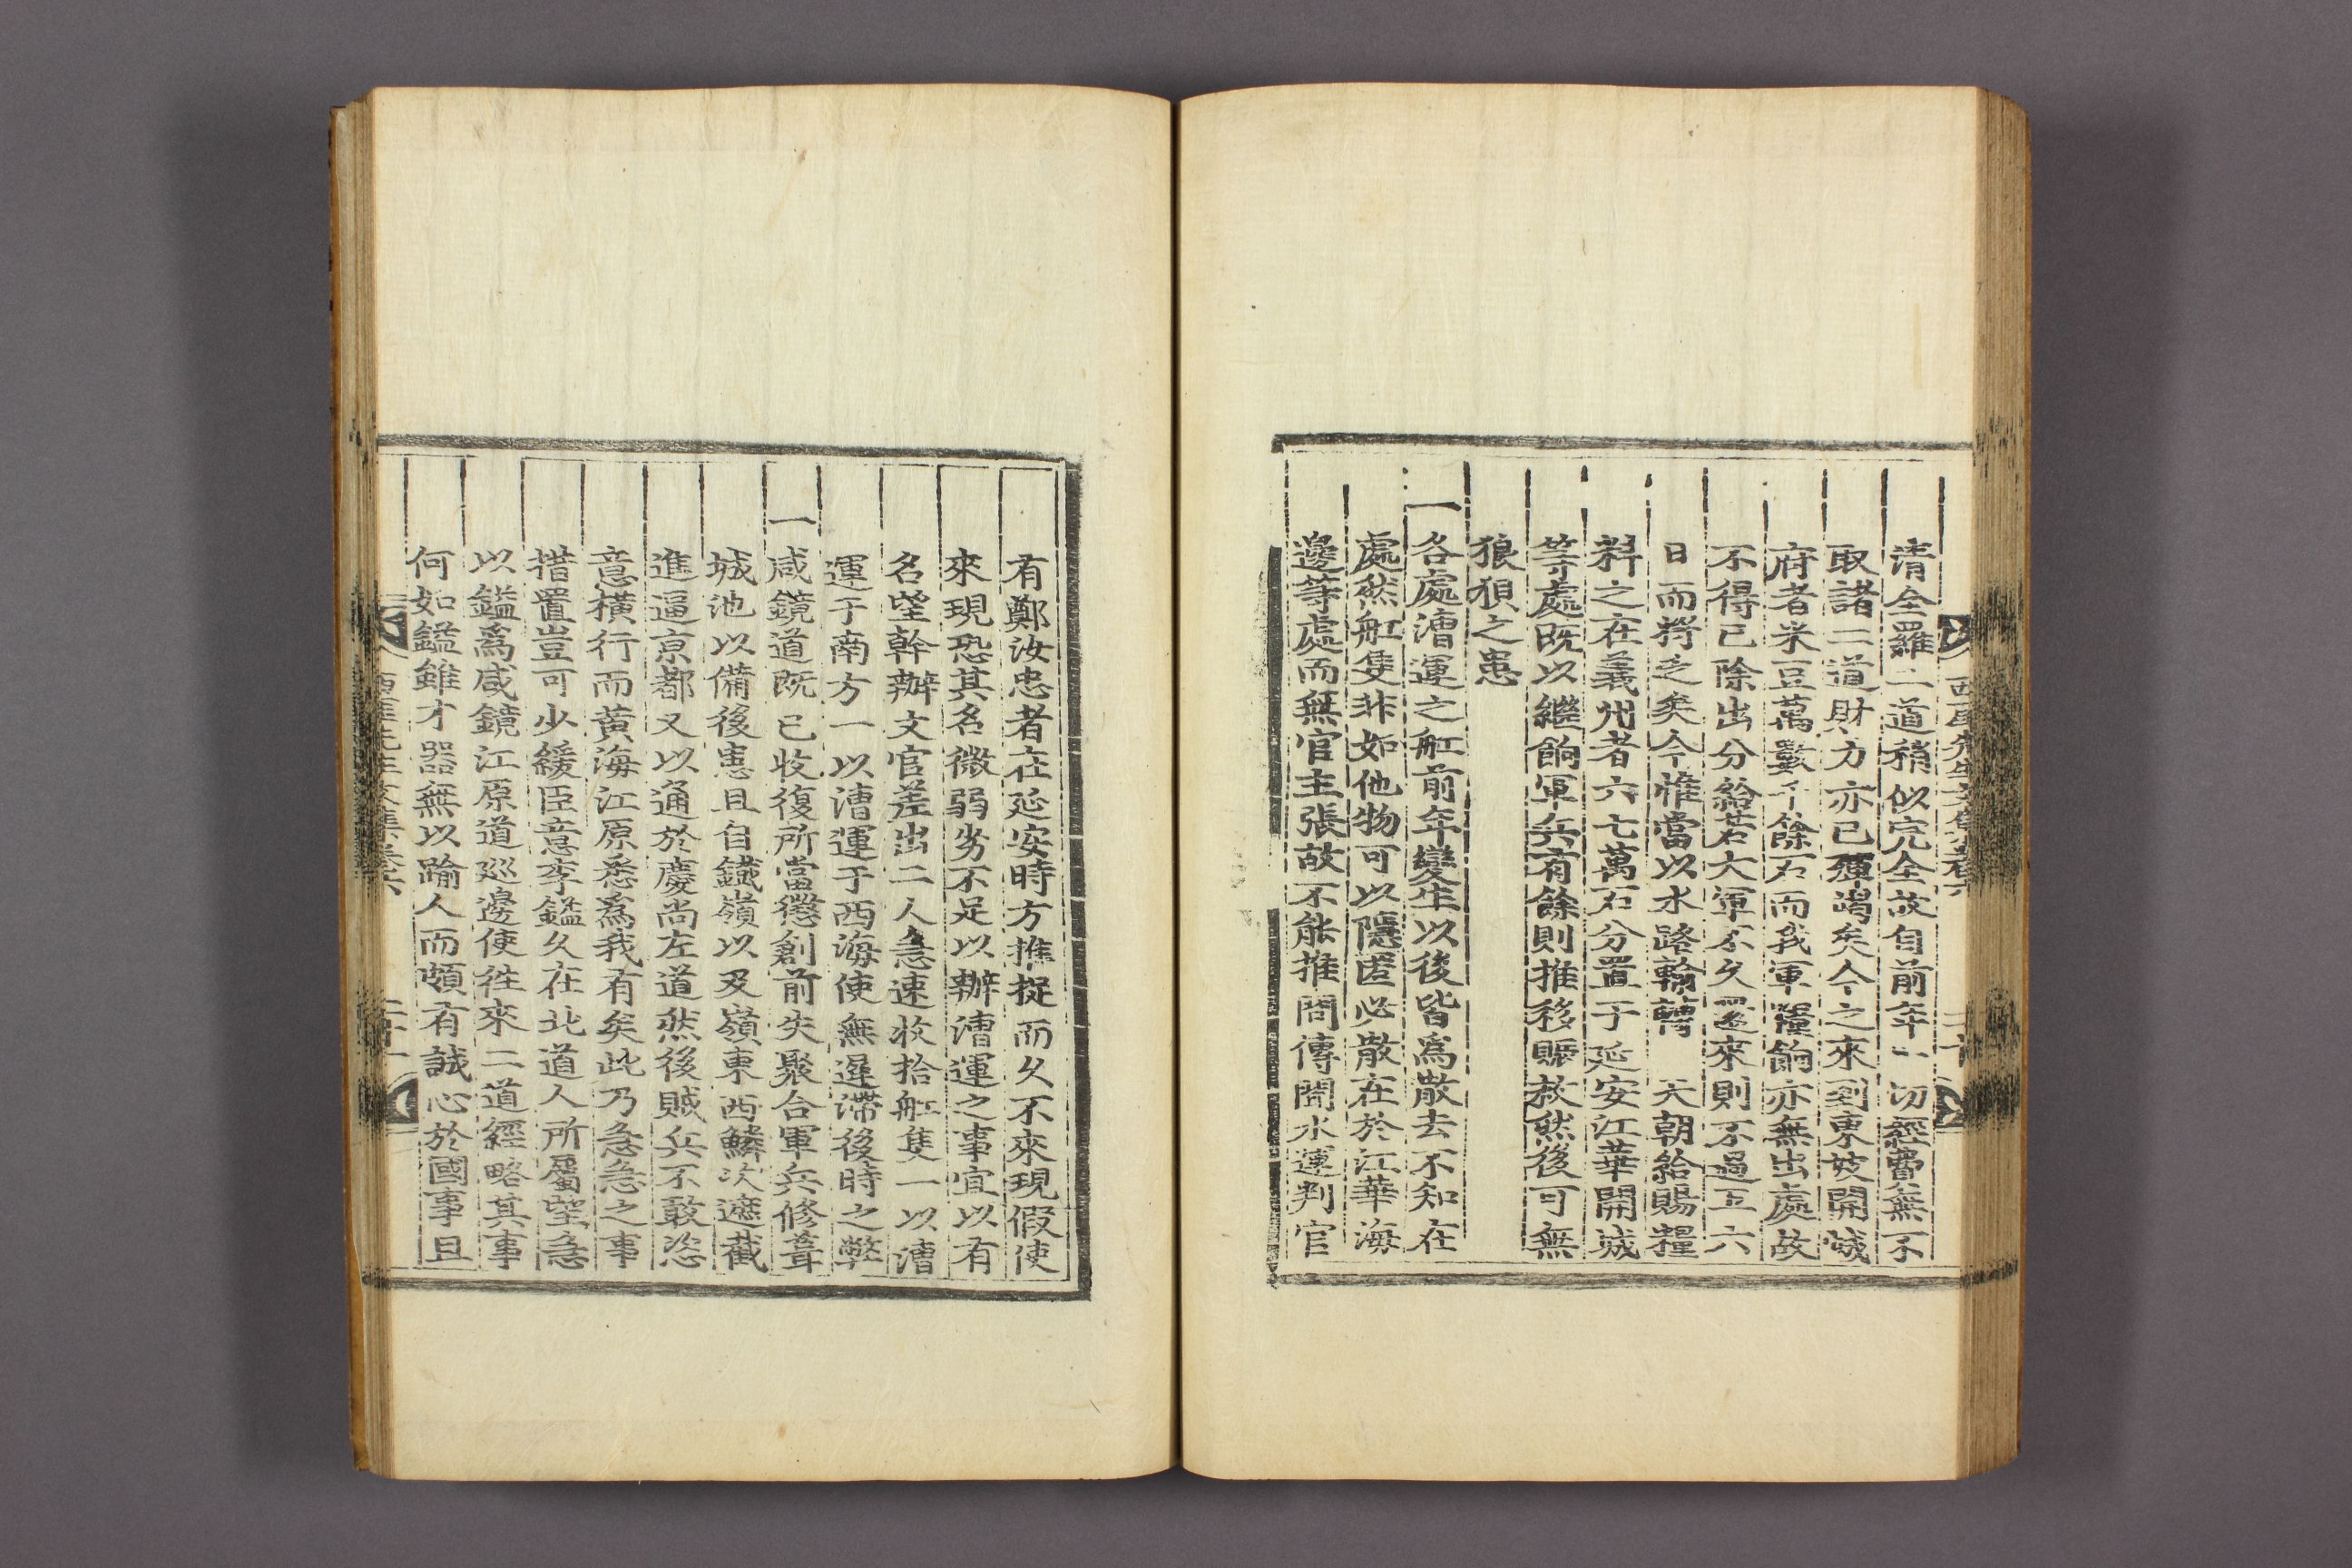 西厓先生文集卷六
淸全羅二道稍似完全故自前年一切經費無不
取諸二道財力亦已殫竭矣今之來到東坡開城
府者米豆萬數千餘石而我軍糧餉亦無出處故
不得已除出分給若大軍不久還來則不過五六
日而將乏矣今惟當以水路輸轉 天朝給賜糧
料之在義州者六七萬石分置于延安江華開城
等處旣以繼餉軍兵有餘則推移賑救然後可無
狼狽之患
一各處漕運之舡前年變生以後皆爲散去不知在
處然舡隻非如他物可以隱匿必散在於江華海
邊等處而無官主張故不能推問傳聞水運判官
有鄭汝忠者在延安時方推捉而久不來現假使
來現恐其名微弱劣不足以辦漕運之事宜以有
名望幹辦文官差出二人急速收拾舡隻一以漕
運于南方一以漕運于西海使無遲滯後時之弊
一咸鏡道旣已收復所當懲創前失聚合軍兵修葺
城池以備後患且自鐵嶺以及嶺東西鱗次遮截
進逼京都又以通於慶尙左道然後賊兵不敢恣
意橫行而黃海江原悉爲我有矣此乃急急之事
措置豈可少緩臣意李鎰久在北道人所屬望急
以鎰爲咸鏡江原道巡邊使徃來二道經略其事
何如鎰雖才器無以踰人而頗有誠心於國事且
西厓先生文集卷六 二十一